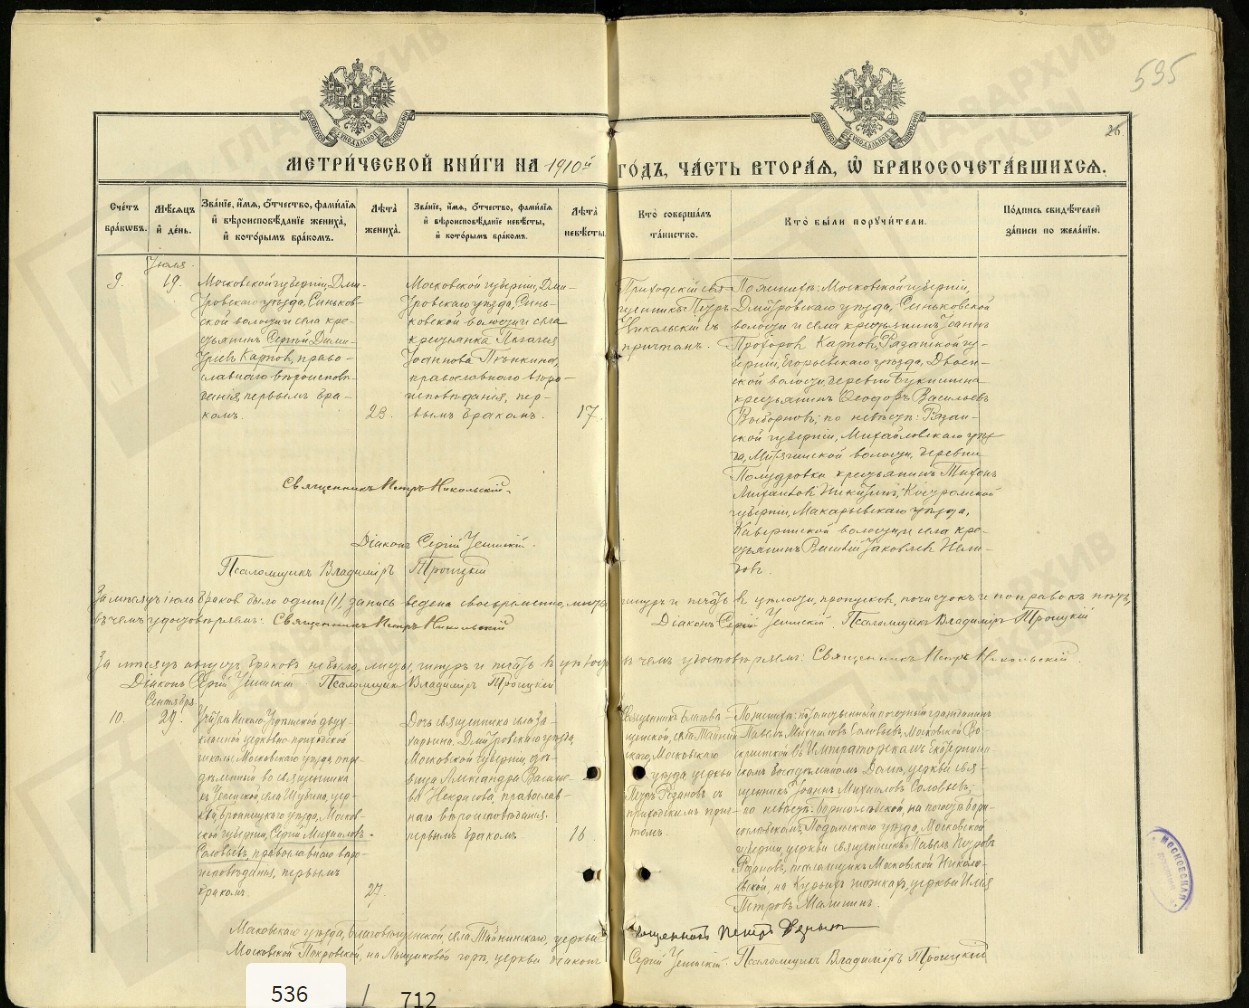 595
26
МЕТРИ́ЧЕСКОЙ КНИ́ГИ НА 1910й ГО́ДЪ, ЧА́СТЬ ВТОРА́Я, Ѡ БРАКОСОЧЕТА́ВШИХСЯ.
Сче́тъ бра́ковъ.
Мѣ́сяцъ и҆ де́нь.
Зва́нїе, и҆́мя, ѻ҆́тчество, фами́лїя и҆ вѣроисповѣ́данїе жениха̀, и҆ кото́рымъ бра́комъ.
Лѣ́та жениха̀.
Зва́нїе, и҆́мя, ѻ҆́тчество, фами́лїя и҆ вѣроисповѣ́данїе невѣ́сты, и҆ кото́рымъ бра́комъ.
Лѣ́та невѣ́сты.
Кто̀ соверша́лъ та́инство.
Кто̀ бы́ли поручи́тели.
По́дпись свидѣ́телей за́писи по жела́нїю.
Іюля
9.
19.
Московской губерніи, Дми-
тровскаго уѣзда, Синьков-
ской волости и села кре-
стьянинъ Сергій Дими-
тріевъ Карповъ, право-
славнаго вѣроисповѣ-
данія, первымъ бра-
комъ.
23.
Московской губерніи, Дми-
тровскаго уѣзда, Синь-
ковской волости и села
крестьянка Пелагея
Іоаннова
православнаго вѣро-
исповѣданія, пер-
вымъ бракомъ.
17.
Приходскій свя-
щенникъ Петръ
Никольскій съ
причтомъ.
По женихѣ: Московской губерніи,
Дмитровскаго уѣзда, Синьковской
волости и села крестьянинъ Іоаннъ
Прохоровъ Карповъ, Рязанской гу-
берніи, Егорьевскаго уѣзда,
ской волости, деревни
крестьянинъ Ѳеодоръ Васильевъ
по невѣстѣ: Рязан-
ской губерніи, Михайловскаго уѣз-
да, волости, деревни
крестьянинъ Тихонъ
Михайловъ Никитинъ, Костромской
губерніи, Макарьевскаго уѣзда,
волости и села кре-
стьянинъ Василій Яковлевъ
Священникъ Петръ Никольскій.
Діаконъ Сергій
Псаломщикъ Владиміръ Троицкій
За мѣсяцъ іюль браковъ было одинъ (1), запись ведена своевременно, листы, шнуръ и печать въ цѣлости, пропусковъ, почистокъ и поправокъ нѣтъ,
въ чемъ удостовѣряемъ: Священникъ Петръ Никольскій Діаконъ Сергій Псаломщикъ Владиміръ Троицкій
За мѣсяцъ августъ браковъ не было, листы, шнуръ и печать въ цѣлости въ чемъ удостовѣряемъ: Священникъ Петръ Никольскій.
Діаконъ Сергій Псаломщикъ Владиміръ Троицкій
Сентября
10.
27.
Учитель Николо-Угрѣшской двух-
классной церковно-приходской
школы Московскаго уѣзда, опре-
дѣленный во священника
къ Успенской села Шубина, цер-
кви, Бронницкаго уѣзда, Москов-
ской губерніи, Сергій Михайловъ
Соловьевъ, православнаго вѣро-
исповѣданія, первымъ
бракомъ.
27.
Дочь священника села За-
харьина, Дмитровскаго уѣзда,
Московской губерніи, дѣ-
вица Александра Василье-
ва Некрасова, православ-
наго вѣроисповѣданія,
первымъ бракомъ.
16
Священникъ Благовѣ-
щенской, села Тайнин-
скаго, Московскаго
уѣзда, церкви
Петръ Розановъ съ
приходскимъ прич-
томъ.
По женихѣ: потомственный почетный гражданинъ
Павелъ Михайловъ Соловьевъ, Московской
въ Императорскомъ Екатеринин-
скомъ Домѣ, церкви свя-
щенникъ Іоаннъ Михайловъ Соловьевъ;
по невѣстѣ:
Подольскаго уѣзда, Московской
губерніи, церкви священникъ Павелъ Петровъ
Розановъ, псаломщикъ Московской Николо-
евской, на Курьихъ ножкахъ, церкви Илія
Петровъ Малининъ.
Московскаго уѣзда, Благовѣщенской, села Тайнинскаго, церкви священникъ Петръ
Московской Покровской, на Лыщиковой горѣ, церкви діаконъ Сергій Псаломщикъ Владиміръ Троицкій
МОСКОВСКАЯ
ГЛАВАРХИВ МОСКВЫ
536 / 712